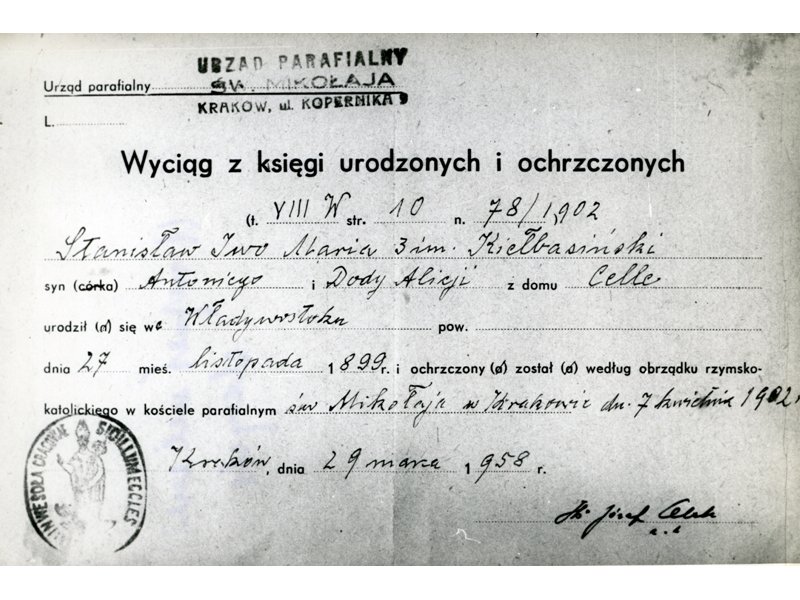 URZĄD PARAFIALNY
Urząd parafialny ŚW. MIKOŁAJA
KRAKÓW, ul. KOPERNIKA 9
L.
Wyciąg z księgi urodzonych i ochrzczonych
(t. VIII W str. 10 n. 78/1,902
Stanisław Iwo Maria 3 im. Kiełbasiński
syn (córka) Antoniego i Dody Alicji z domu Celle
urodził (a) się we Władywostoku pow.
dnia 27 mieś. listopada 1899 r. i ochrzczony (a) został (a) według obrządku rzymsko-
katolickiego w kościele parafialnym św Mikołaja w Krakowie dn. 7 kwietnia 1902 r
Kraków, dnia 29 marca 1958 r.
Ks Józef
SIGILLUM ECCLES
IN WESOŁA CRACOVIAE